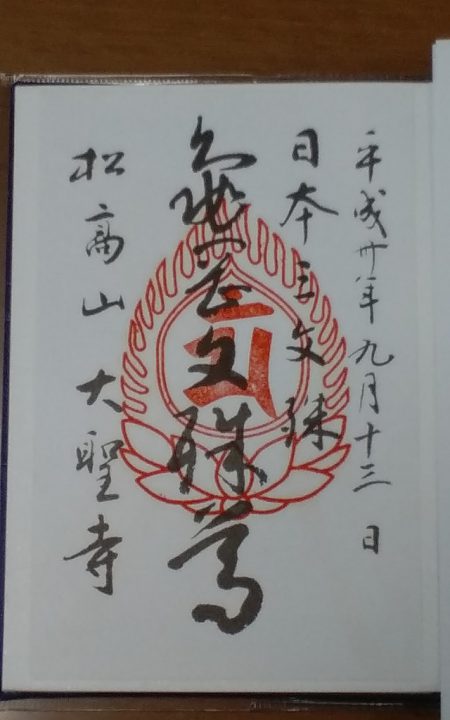 平成卅年九月十三日
日本三文殊
亀岡文殊尊
松高山 大聖寺